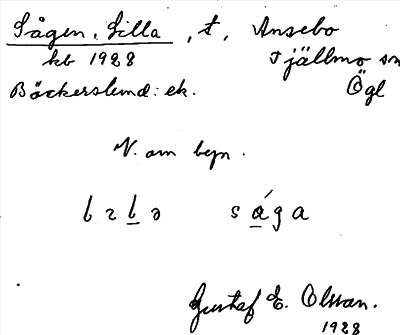 Sågen, Lilla, t, Ansebo
kb 1928 Tjällmo sn
Bäckerslund: ek. Ögl
N. om byn.
såga
Gustaf E. Olsson.
1928